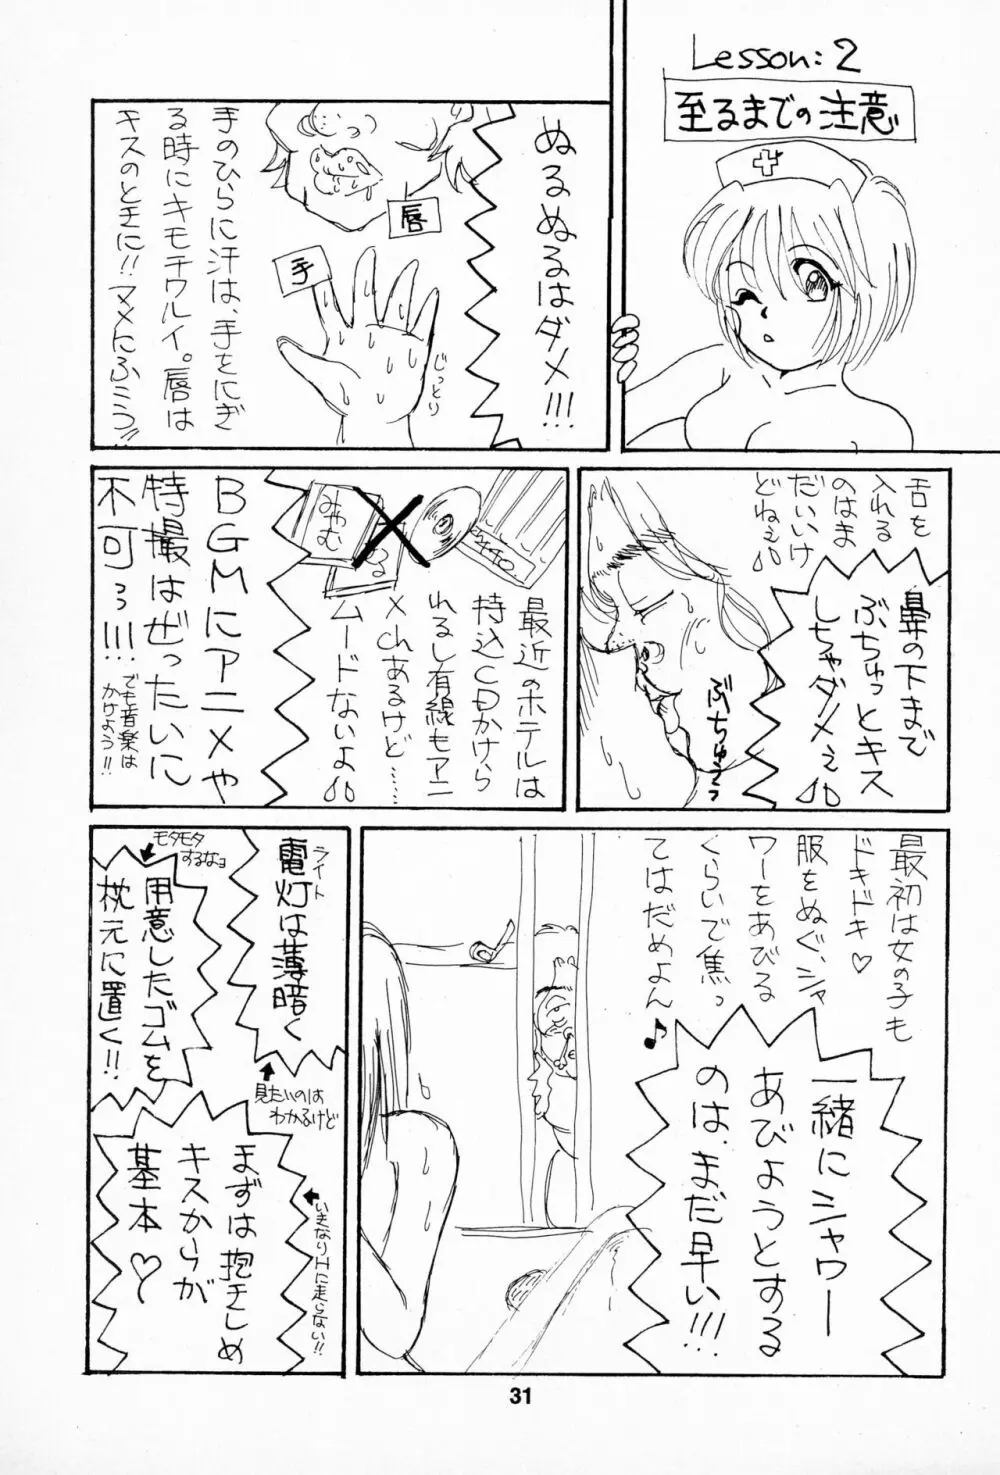 Lesson:2
至るまでの注意
ぬるぬるはダメ!!!
唇
手
じっとり
手のひらに汗は、手をにぎ
る時にキモチワルイ。唇は
キスのときに!!マメにふこう!!
舌を
入れる
のはま
だいいけ
どねぇ
鼻の下まで
ぶちゅっとキス
しちゃダメぇ
ぶちゅうっ
440
最近のホテルは
持込CDかけら
れるし有線もアニ
メchあるけど……
ムードないよ
BGMにアニメや
特撮はぜったいに
不可っ!!!
でも音楽は
かけよう!!
最初は女の子も
ドキドキ♡
服をぬぐ、シャ
ワーをあびる
くらいで焦っ
てはだめよん♪
一緒にシャワー
あびようとする
のは、まだ早い!!!
ライト
電灯は薄暗く
見たいのは
わかるけど
モタモタ
するなョ
用意したゴムを
枕元に置く!!
まずは抱きしめ
キスからが
基本♡
いきなりHに走らない!!
31